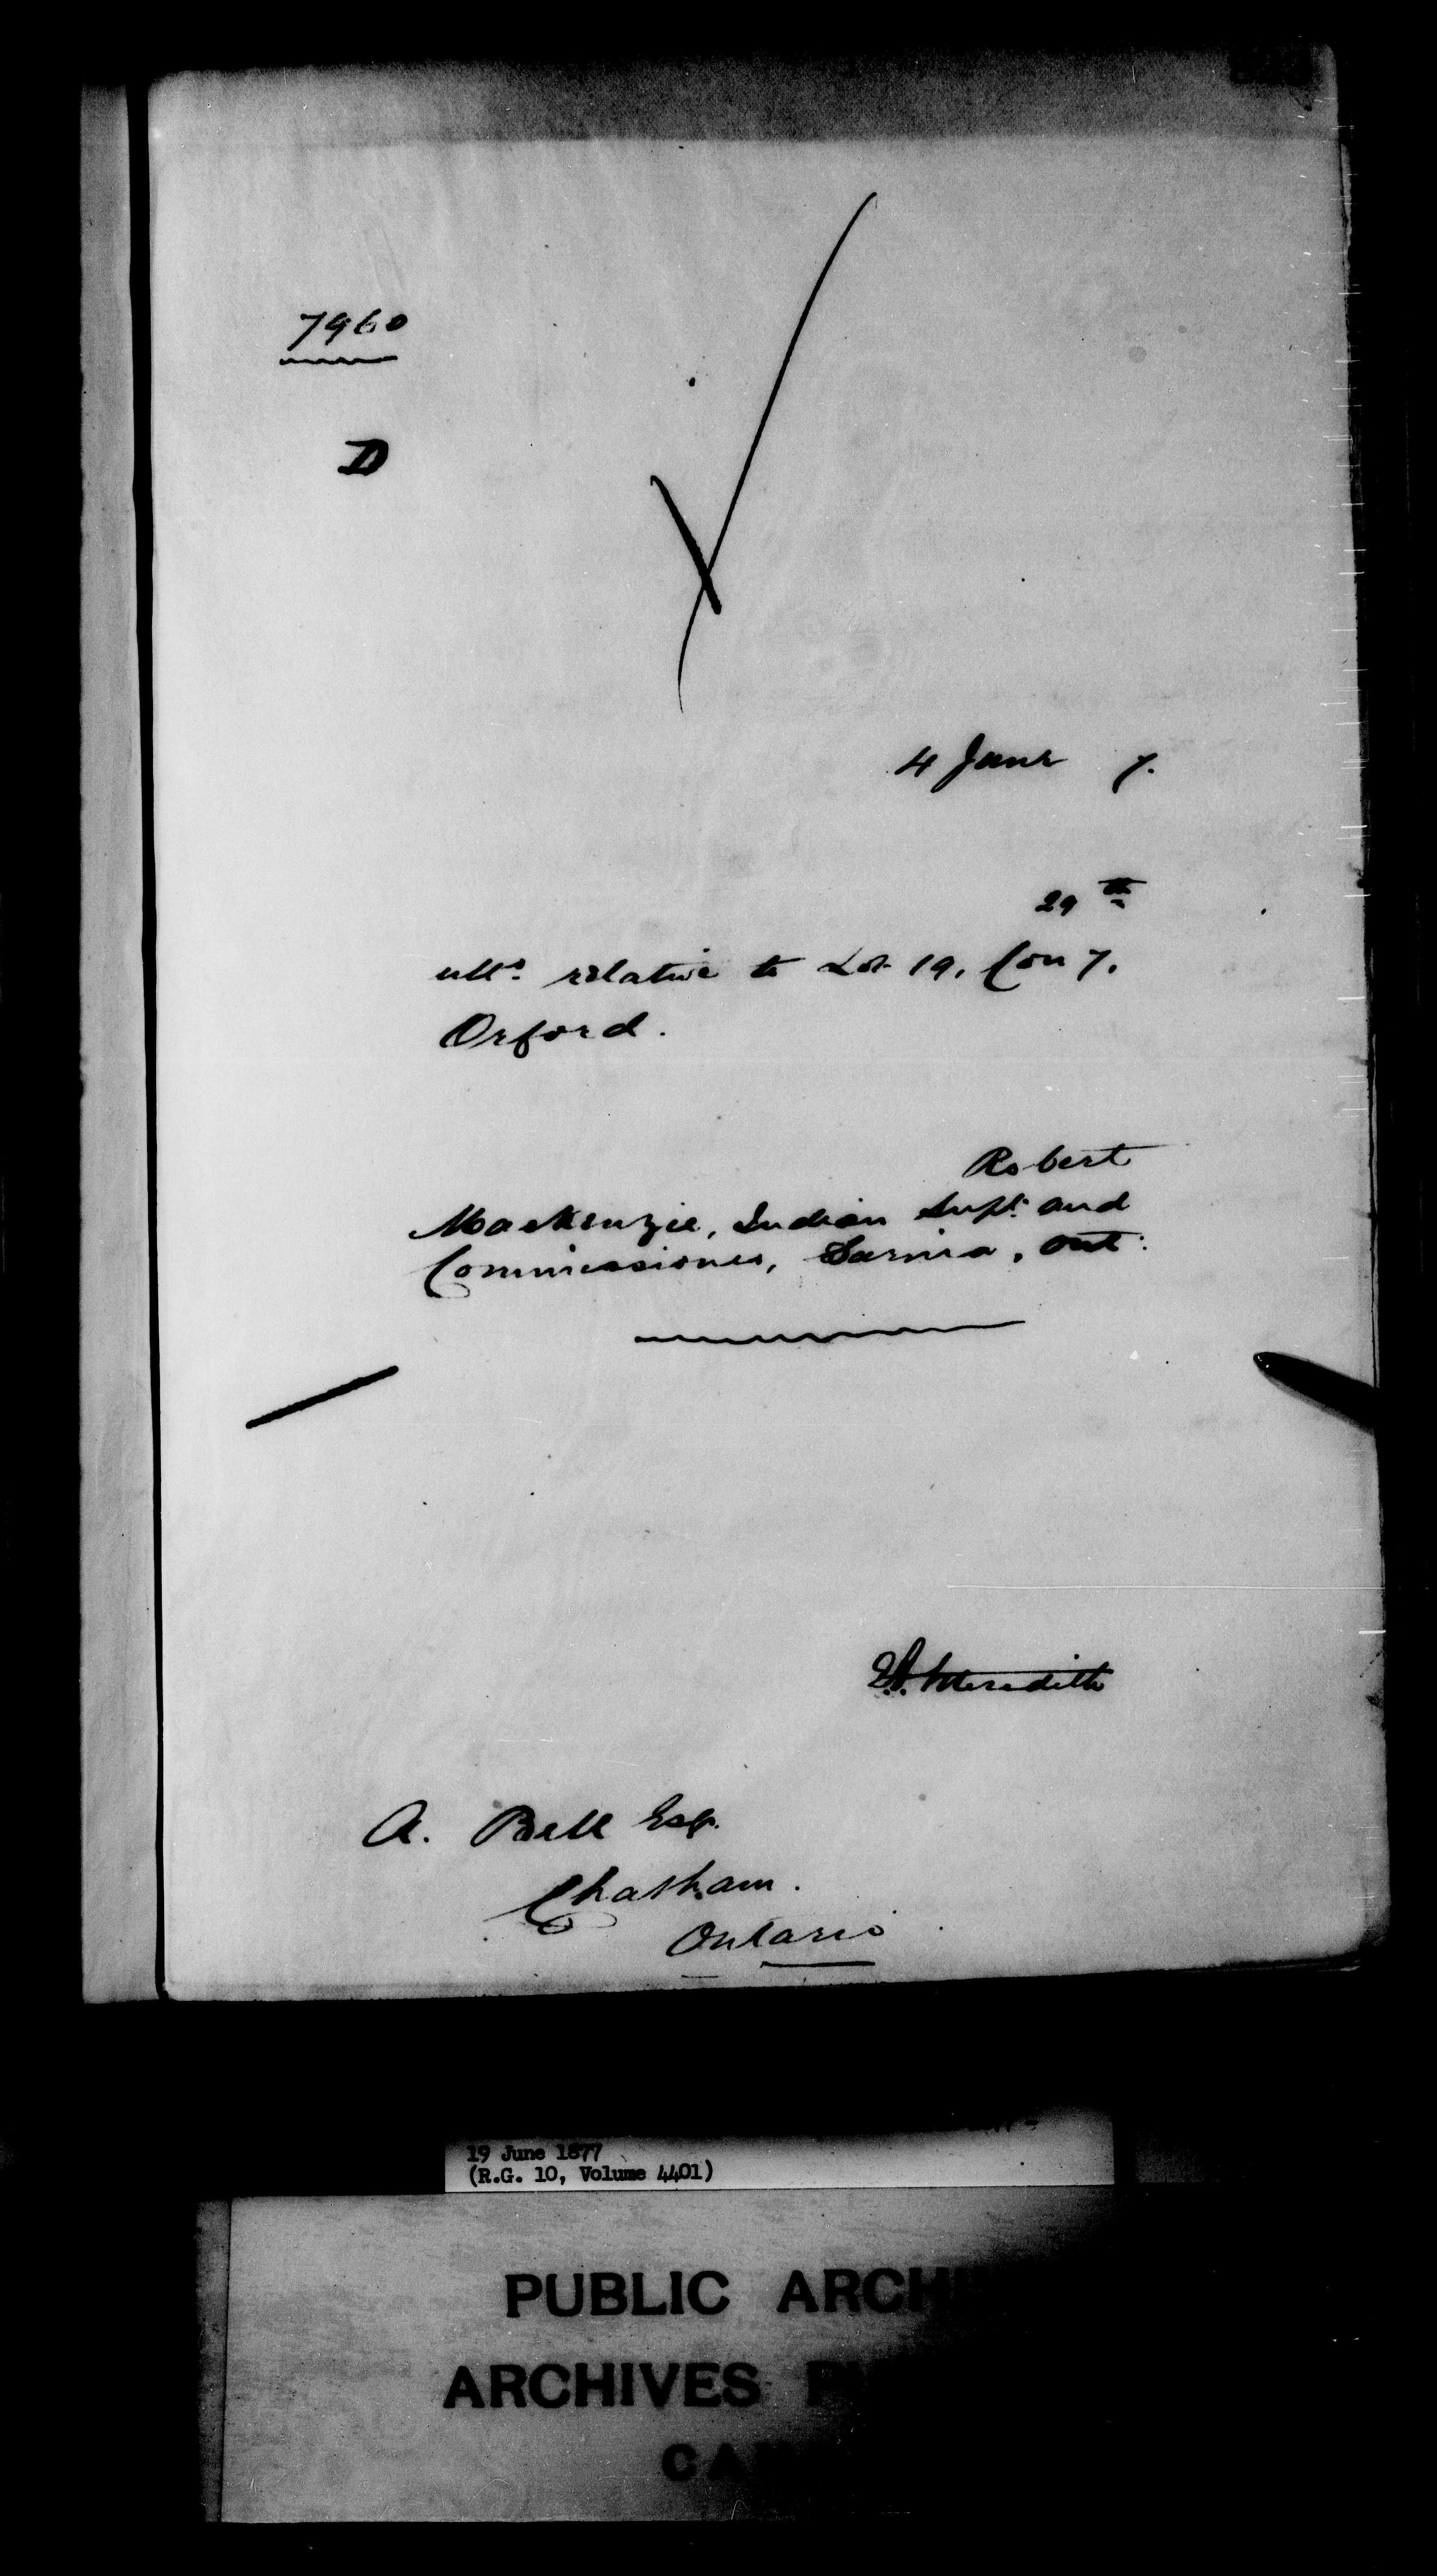 7960
D
4 June 7.
29th
ulto. relative to Lot 19. Con 7.
Orford.
Robert
MacKenzie, Indian Supt. and
Commissioner, Sarnia, Ont:
E.A. Meredith
A. Bell Esq.
Chatham.
Ontario
19 June 1877
(R.G. 10, Volume 4401)
PUBLIC ARCHI
ARCHIVES PU
CA